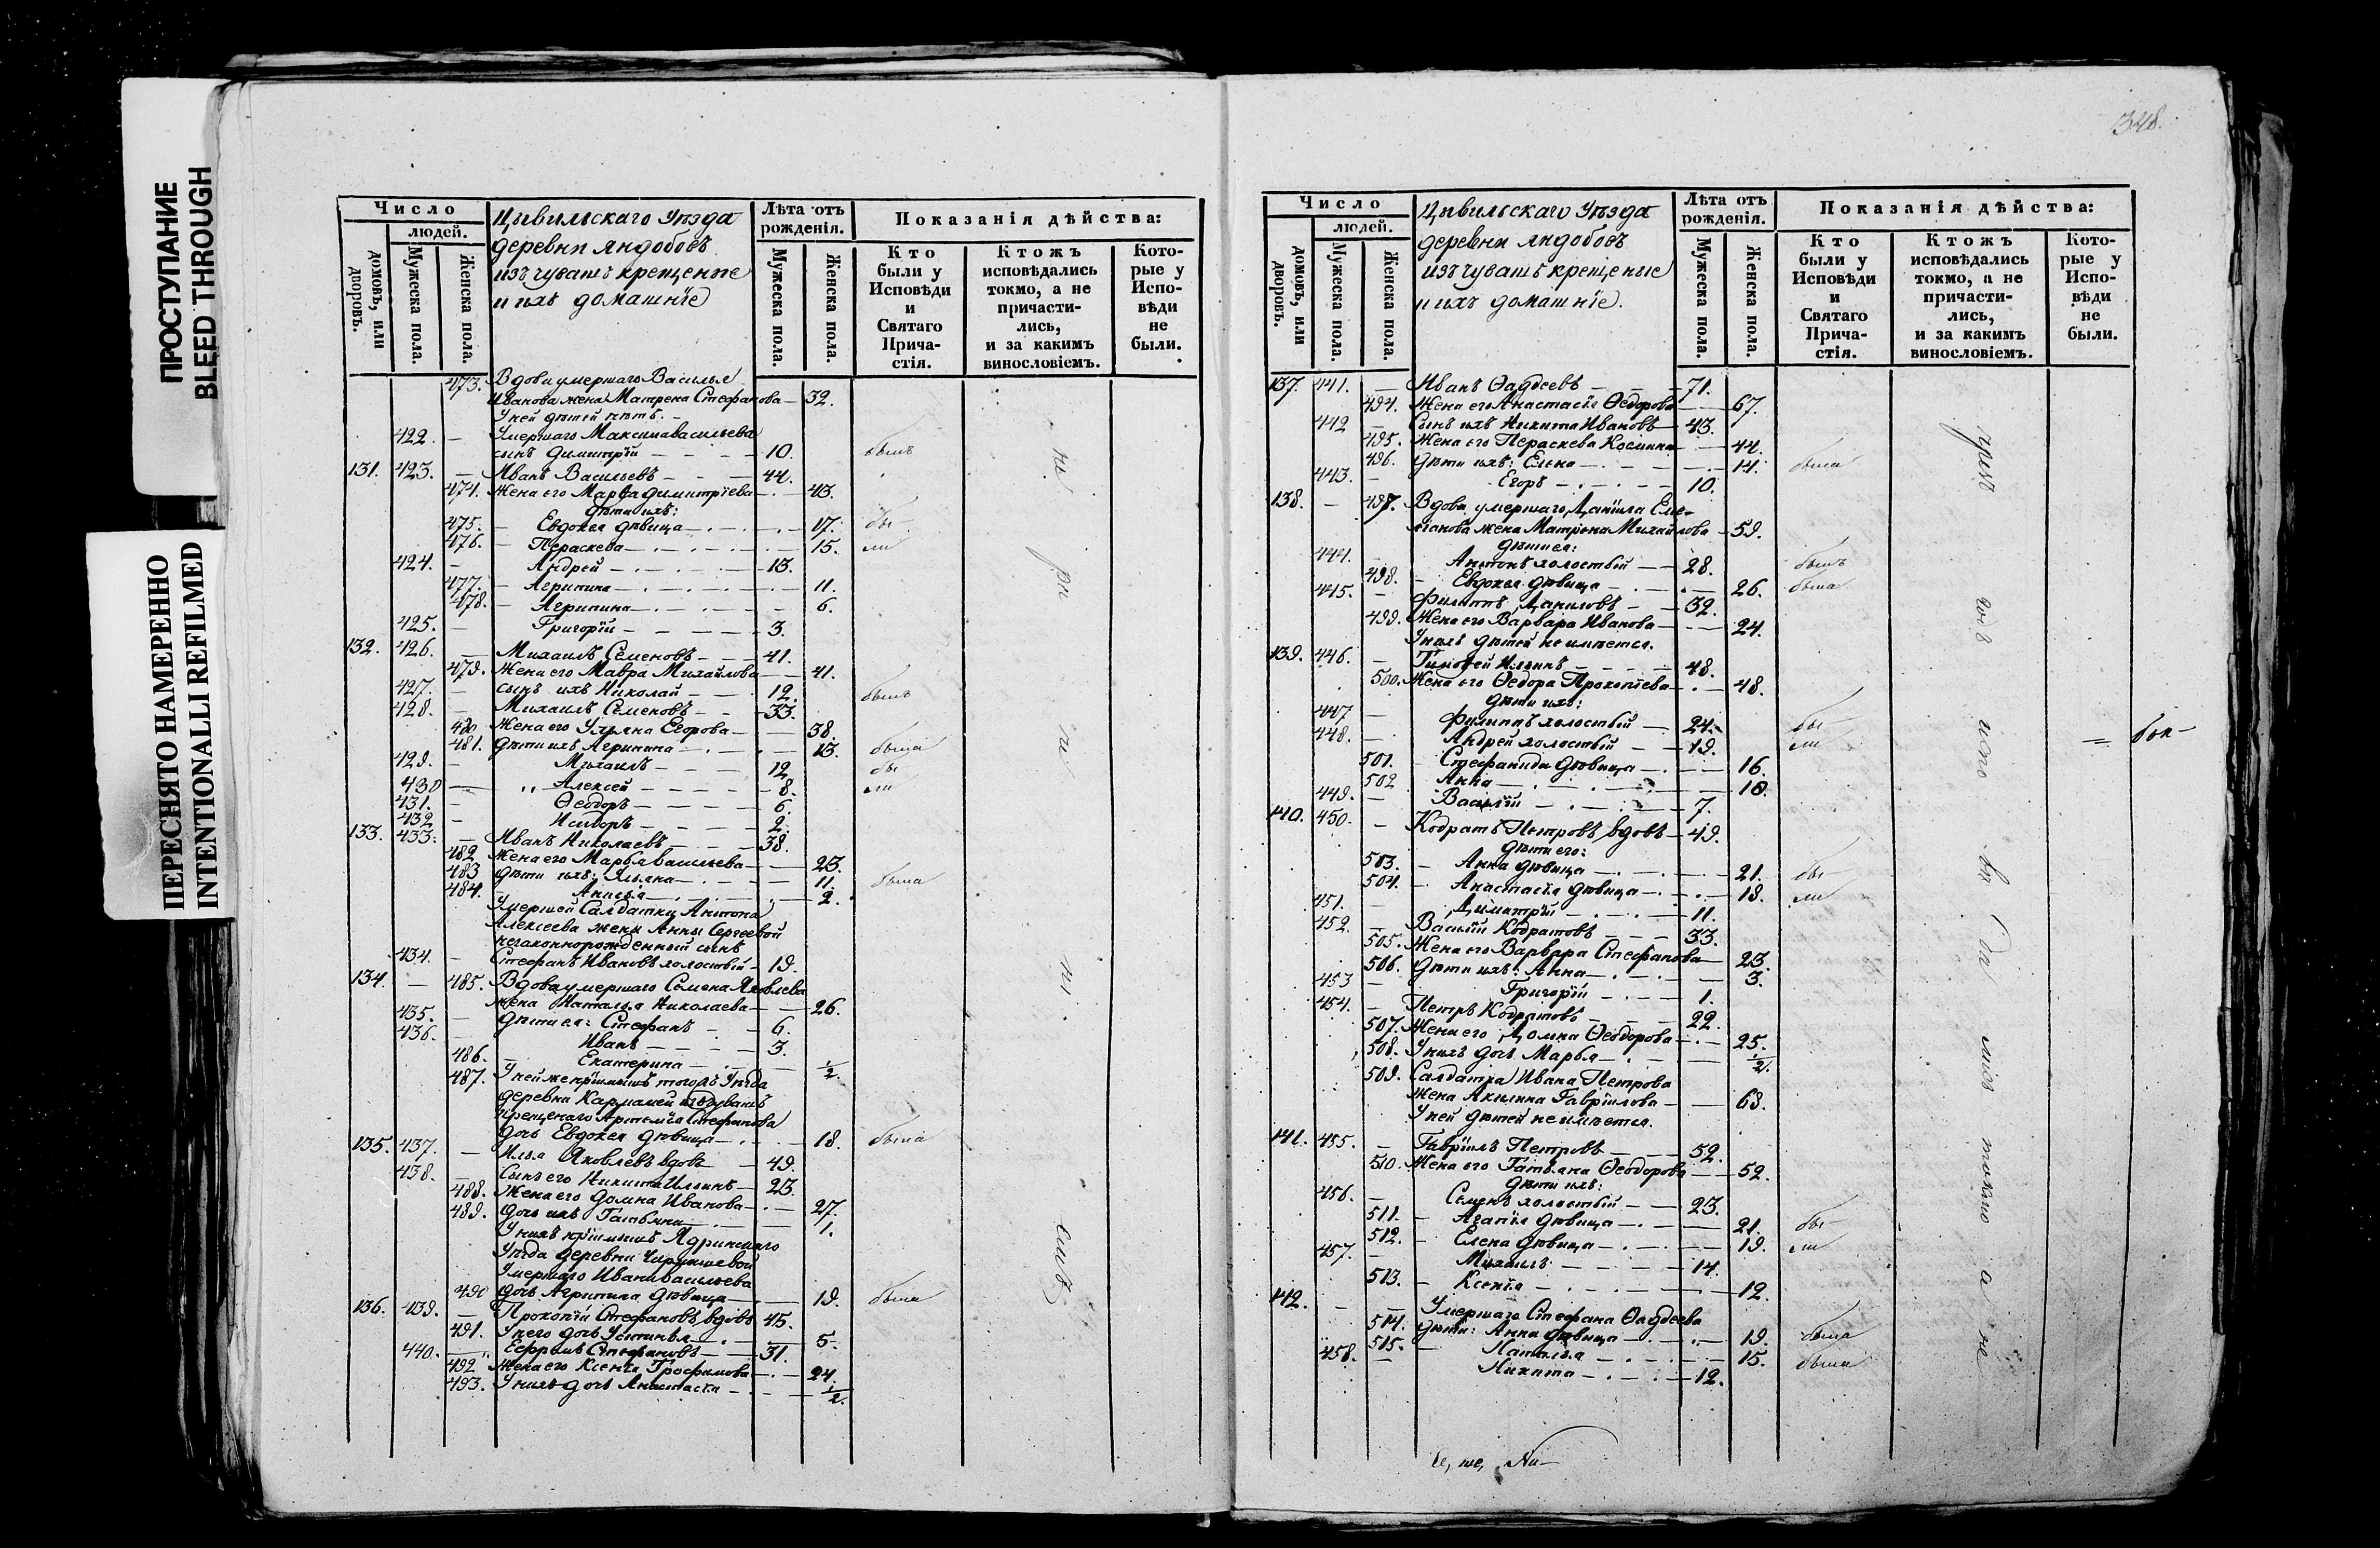 ПРОСТУПАНИЕ
BLEED THROUGH
ПЕРЕСНЯТО НАМЕРЕННО
INTENTIONALLI REFILMED
Число
людей.
домовъ, или дворовъ.
Мужеска пола.
Женска пола.
Цывильскаго Уѣзда
деревни Яндобовъ
изъ чувашъ крещеные
и ихъ домашніе
Лѣта отъ рожденія.
Мужеска пола.
Женска пола.
Показанія дѣйства:
Кто были у Исповѣди и Святаго Причастія.
Ктожъ исповѣдались токмо, а не причастились, и за какимъ винословіемъ.
Которые у Исповѣди не были.
473. Вдова умершаго Василья
Иванова жена Матрена Стефанова — 32.
У ней дѣтей нѣтъ.
422. Умершаго Максима Васильева
сынъ Димитрій — 10. былъ
131. 423. Иванъ Васильевъ — 44.
474. Жена его Марѳа Димитріева — 43.
дѣти ихъ:
475. Евдокея дѣвица — 17. бы-
476. Пераскева — 15. ли
424. Андрей — 13.
477. Агрипина — 11.
478. Агрипина — 6.
425. Григорій — 3.
132. 426. Михаилъ Семеновъ — 41.
479. Жена его Мавра Михайлова — 41.
427. сынъ ихъ Николай — 12. былъ
428. Михаилъ Семеновъ — 33.
480 Жена его Ульяна Егорова — 38.
481. дѣти ихъ Агрипина — 13. была
429. Михаилъ — 12 бы-
430 „ Алексей — 8. ли
431. Ѳеодоръ — 6.
432 Исидоръ — 2.
133. 433. Иванъ Николаевъ — 38.
482 Жена его Марья Васильева — 23.
483 дѣти ихъ: Ульяна — 11. была
484. Анисья — 2.
Умершей Салдатки Антона
Алексеева жены Анны Сергеевой
незаконнорожденный сынъ
434. Стефанъ Ивановъ холостый — 19.
134. — 485. Вдова умершаго Семена Яковлева
жена Наталья Николаева — 26.
435. дѣти ея: Стефанъ — 6.
436. Иванъ — 3.
486. Екатерина — 1/2.
487. У ней же пріимышъ тогожъ Уѣзда
деревни Кармалей изъ чувашъ
крещенаго Артемія Стефанова
дочь Евдокея дѣвица — 18. была
135. 437. Илья Яковлевъ вдовъ — 49.
438. Сынъ его Никита Ильинъ — 23.
488. Жена его Домна Иванова — 27.
489. дочь ихъ Татьяна — 1.
У нихъ пріимышъ Ядринскаго
Уѣзда деревни
Умершаго Ивана Васильева
490 дочь Агрипина дѣвица — 19. была
136. 439. Прокопій Стефановъ вдовъ 45.
491. У него дочь Устинья — 5.
440. Ефремъ Стефановъ — 31.
492 Жена его Ксенія Трофимова — 24.
493. У нихъ дочь Анастасія — 1/2.
348.
Число
людей.
домовъ, или дворовъ.
Мужеска пола.
Женска пола.
Цывильскаго Уѣзда
деревни Яндобовъ
изъ чувашъ крещеные
и ихъ домашніе.
Лѣта отъ рожденія.
Мужеска пола.
Женска пола.
Показанія дѣйства:
Кто были у Исповѣди и Святаго Причастія.
Ктожъ исповѣдались токмо, а не причастились, и за какимъ винословіемъ.
Которые у Исповѣди не были.
137. 441. — Иванъ Ѳаддеевъ — 71.
494. Жена его Анастасія Ѳедорова — 67.
442 Сынъ ихъ Никита Ивановъ — 43.
495. Жена его Пераскева Космина — 44.
496. Дѣти ихъ: Елена — 14. была
443. Егоръ — 10.
138. — 497. Вдова умершаго Данiила Еме-
лiанова жена Матрона Михайлова — 59.
дѣти ея:
444. Антонъ холостый — 28. былъ
498. Евдокея дѣвица — 26. была
445. Филиппъ Даниловъ — 32.
499. Жена его Варвара Иванова — 24.
У нихъ дѣтей не имѣется.
139. 446. Тимоѳей Ильинъ — 48.
500. Жена его Ѳедора Прокопіева — 48.
дѣти ихъ:
447 Филиппъ холостый — 24. бы-
448. Андрей холостый — 19. ли
501. Стефанида дѣвица — 16.
502 Анна — 10.
449. Василій — 7.
140. 450. Кодратъ Петровъ вдовъ — 49.
дѣти его:
503. Анна дѣвица — 21. бы-
504. Анастасія дѣвица — 18. ли
451. Димитрій — 11.
452. Василій Кодратовъ — 33.
505. Жена его Варвара Стефанова — 23.
506. Дѣти ихъ: Анна — 3.
453 Григорій — 1.
454. Петръ Кодратовъ — 22.
507. Жена его Домна Ѳеодорова — 25.
508. У нихъ дочь Марья — 1/2.
509. Салдатка Ивана Петрова
жена Акилина Гавріилова — 63.
У ней дѣтей не имѣется.
141. 455. Гавріилъ Петровъ — 52.
510. Жена его Татьяна Ѳеодорова — 52.
Дѣти ихъ:
456. Семенъ холостый — 23.
511. Агапія дѣвица — 21. бы-
512. Елена дѣвица — 19. ли
457. Михаилъ — 14.
513. Ксенія — 12.
142. Умершаго Стефана Ѳаддеева
514. дѣти: Анна дѣвица — 19. была
515. Наталья — 15. была
458. Никита — 12.